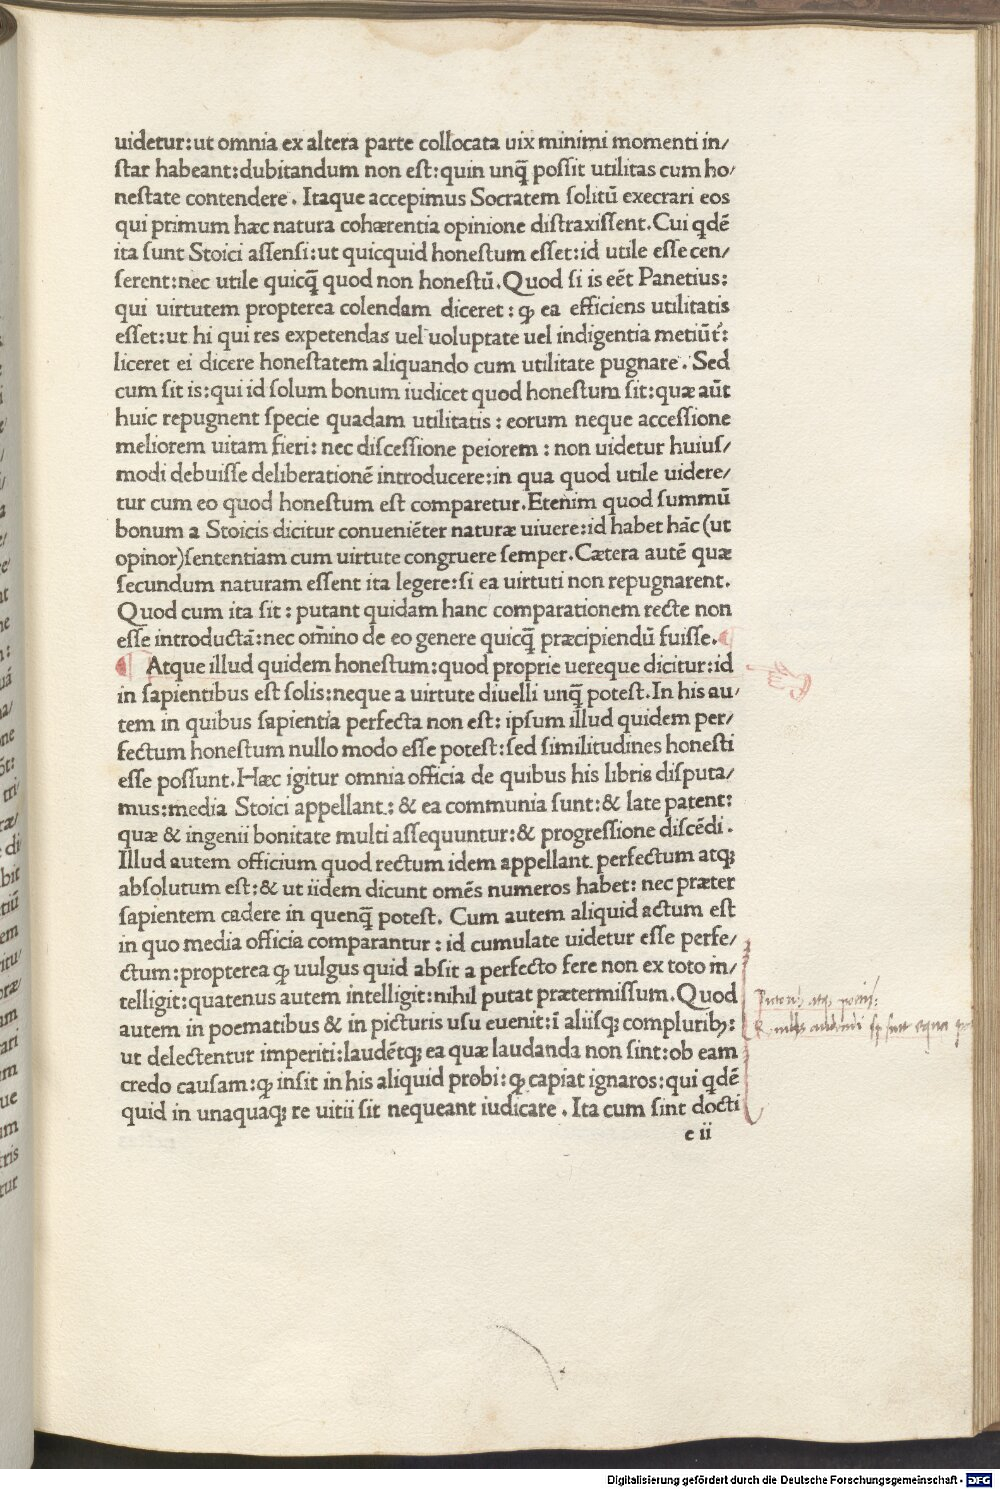 uidetur:ut omnia ex altera parte collocata uix minimi momenti in/
ſtar habeant:dubitandum non eſt:quin unq̄ poſſit utilitas cum ho/
neſtate contendere. Itaque accepimus Socratem ſolitū execrari eos
qui primum hæc natura cohærentia opinione diſtraxiſſent. Cui qdē
ita ſunt Stoici aſſenſi:ut quicquid honeſtum eſſet:id utile eſſe cen/
ſerent:nec utile quicq̄ quod non honeſtū. Quod ſi is eēt Panetius:
qui uirtutem propterea colendam diceret: ꝙ ea efficiens utilitatis
eſſet:ut hi qui res expetendas uel uoluptate uel indigentia metiūt᷑:
liceret ei dicere honeſtatem aliquando cum utilitate pugnare. Sed
cum ſit is:qui id ſolum bonum iudicet quod honeſtum ſit:quæ aūt
huic repugnent ſpecie quadam utilitatis: eorum neque acceſſione
meliorem uitam fieri: nec diſceſſione peiorem: non uidetur huiuſ/
modi debuiſſe deliberationē introducere:in qua quod utile uidere/
tur cum eo quod honeſtum eſt comparetur. Etenim quod ſummū
bonum a Stoicis dicitur conueniēter naturæ uiuere:id habet hāc (ut
opinor)ſententiam cum uirtute congruere ſemper. Cætera autē quæ
ſecundum naturam eſſent ita legere:ſi ea uirtuti non repugnarent.
Quod cum ita ſit: putant quidam hanc comparationem recte non
eſſe introductā:nec om̄ino de eo genere quicq̄ præcipiendū fuiſſe.
Atque illud quidem honeſtum:quod proprie uereque dicitur:id
in ſapientibus eſt ſolis:neque a uirtute diuelli unq̄ poteſt. In his au/
tem in quibus ſapientia perfecta non eſt: ipſum illud quidem per/
fectum honeſtum nullo modo eſſe poteſt:ſed ſimilitudines honeſti
eſſe poſſunt. Hæc igitur omnia officia de quibus his libris diſputa/
mus:media Stoici appellant: & ea communia ſunt:& late patent:
quæ & ingenii bonitate multi aſſequuntur:& progreſſione diſcēdi.
Illud autem officium quod rectum idem appellant perfectum atq;
abſolutum eſt:& ut iidem dicunt omēs numeros habet: nec præter
ſapientem cadere in quenq̄ poteſt. Cum autem aliquid actum eſt
in quo media officia comparantur: id cumulate uidetur eſſe perfe/
ctum:propterea ꝙ uulgus quid abſit a perfecto fere non ex toto in/
telligit:quatenus autem intelligit:nihil putat prætermiſſum. Quod
autem in poematibus & in picturis uſu euenit:ī aliiſq; compluribꝫ:
ut delectentur imperiti:laudētq; ea quæ laudanda non ſint:ob eam
credo cauſam:ꝙ inſit in his aliquid probi:ꝙ capiat ignaros:qui qdē
quid in unaquaq; re uitii ſit nequeant iudicare. Ita cum ſint docti
e ii
Digitalisierung gefördert durch die Deutsche Forschungsgemeinschaft - DFG